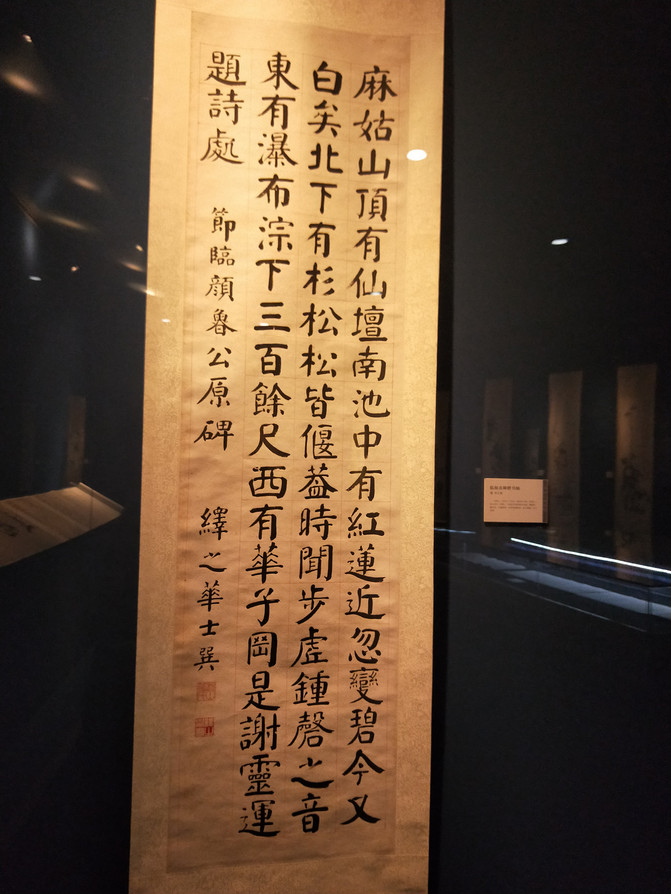 麻姑山頂有仙壇南池中有紅蓮近忽變碧今又
白矣北下有杉松松皆偃葢時聞步虛鍾磬之音
東有瀑布淙下三百餘尺西有華子岡是謝靈運
題詩處
節臨顏魯公原碑
繹之華士巽